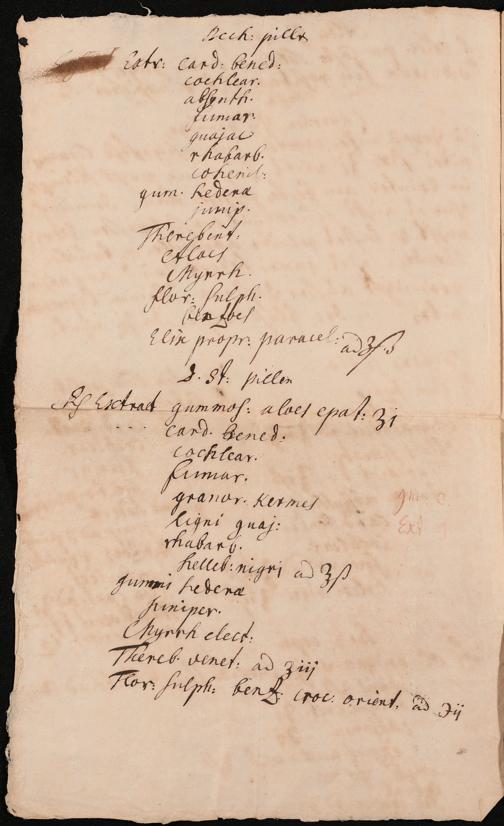 Bech: pilln
Extr: card: bened:
cochlear.
absynth.
fumar.
guajac
rhabarb.
gum. hederæ
junip.
Therebent:
Aloes
Myrrh.
flor: sulph.
benzoes
Elix propr: paracel: ad ʒß
D. St: pillen
Rx Extract gummos: aloes epat: ʒi
card. bened:
cochlear.
fumar.
granor. Kermes
ligni guaj:
rhabarb.
helleb: nigri ad ʒß
gummi hederæ
Juniper.
Myrrh elect:
Thereb. venet: ad ʒiij
Flor: sulph: benz: croc: orient: ad ʒij